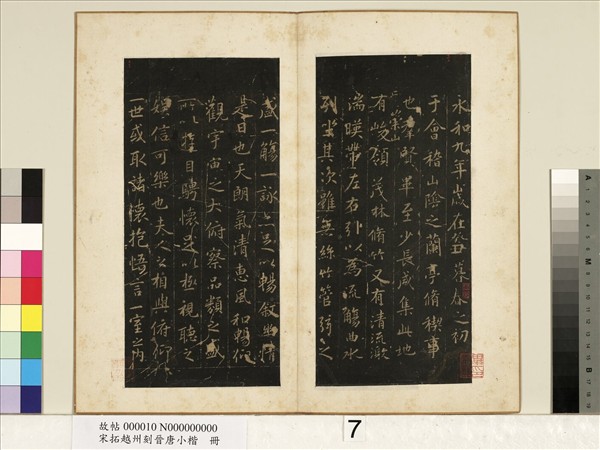 永和九年歲在癸丑暮春之初
于會稽山陰之蘭亭脩稧事
也羣賢畢至少長咸集此地
崇山
有峻領茂林脩竹又有清流激
湍暎帶左右引以為流觴曲水
列坐其次雖無絲竹管弦之
盛一觴一詠亦足以暢叙幽情
是日也天朗氣清惠風和暢仰
觀宇宙之大俯察品類之盛
所以遊目騁懷足以極視聽之
娛信可樂也夫人之相與俯仰
一世或取諸懷抱悟言一室之內
故帖 000010 N000000000
宋拓越州刻晉唐小楷 冊
7
A
B